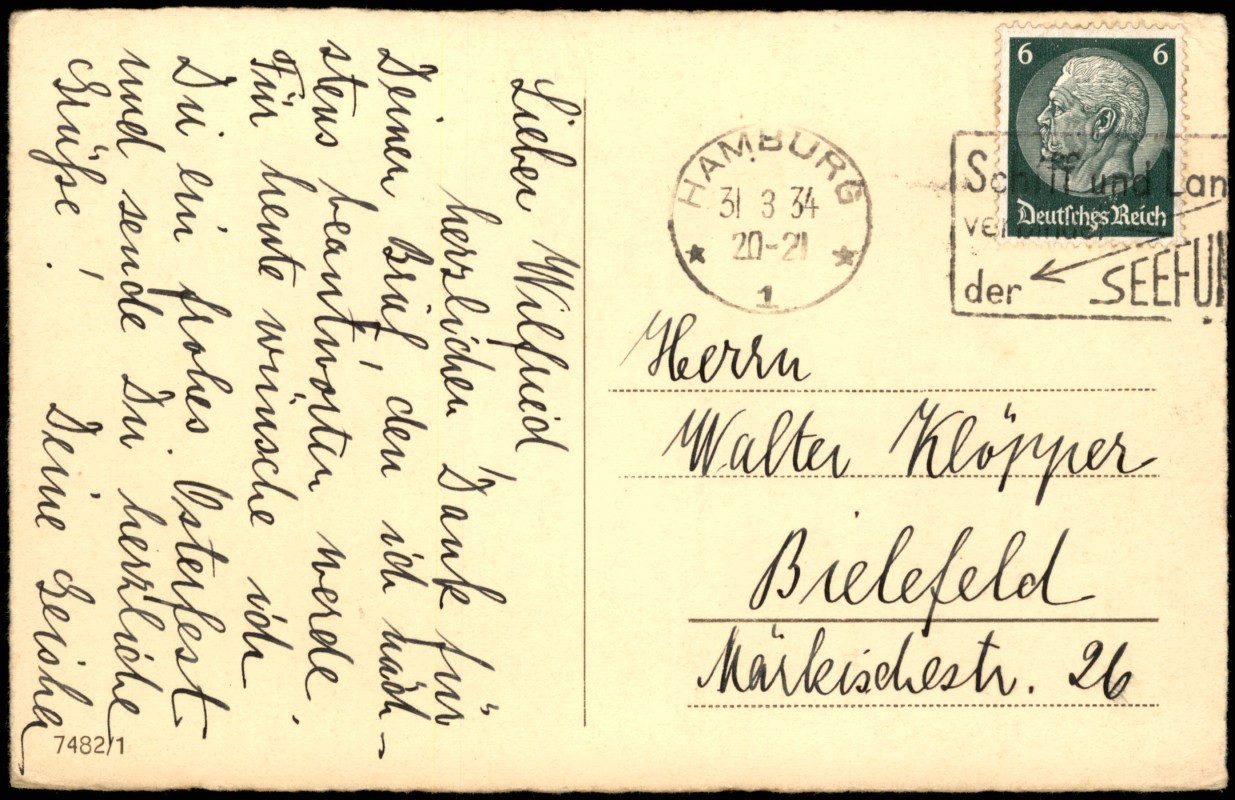 Lieber Wilfried!
herzlichen Dank für
Deinen Brief, den ich näch-
stens beantworten werde.
Für heute wünsche ich
Dir ein frohes Osterfest
und sende Dir herzliche
Grüße! Deine Geisha
7482/1
6 6
Deutsches Reich
HAMBURG
31 3 34
20-21
1
Schiff und Lan
verbindet
der SEEFU
Herrn
Walter Klöpper
Bielefeld
Märkischestr. 26